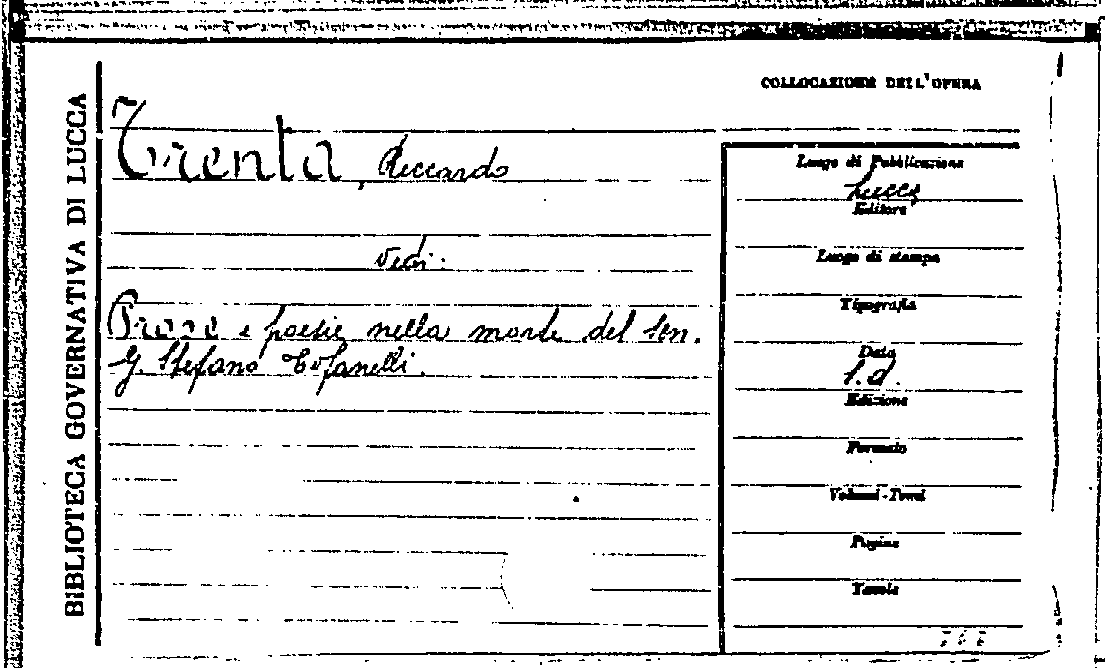 BIBLIOTECA GOVERNATIVA DI LUCCA
COLLOCAZIONE DELL'OPERA
Trenta, Riccardo
vedi:
Prose e poesie nella morte del Sen.
G. Stefano Tofanelli.
Luogo di Pubblicazione
Lucca
Editore
Luogo di stampa
Tipografia
Data
s.d.
Edizione
Formato
Volumi-Tomi
Pagine
Tavole